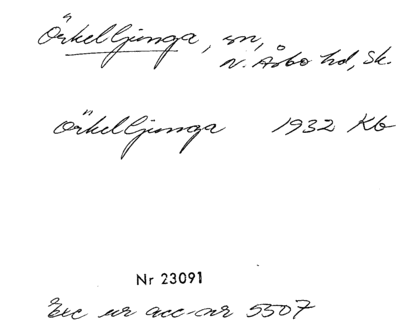 Örkelljunga, sn,
N. Åsbo hd, Sk.
Örkelljunga 1932 Kb
Nr 23091
Exc ur acc-nr 5507